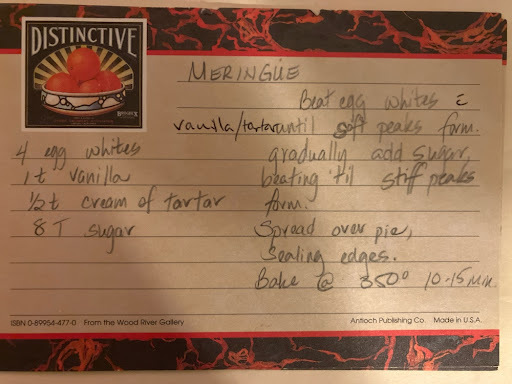 DISTINCTIVE
MERINGUE
4 egg whites
1 t vanilla
1/2 t cream of tartar
8 T sugar
Beat egg whites c̄
vanilla/tartar until soft peaks form.
gradually add sugar,
beating 'til stiff peaks
form.
Spread over pie,
sealing edges.
Bake @ 350° 10-15 min.
ISBN 0-89954-477-0 From the Wood River Gallery
Antioch Publishing Co. Made in U.S.A.